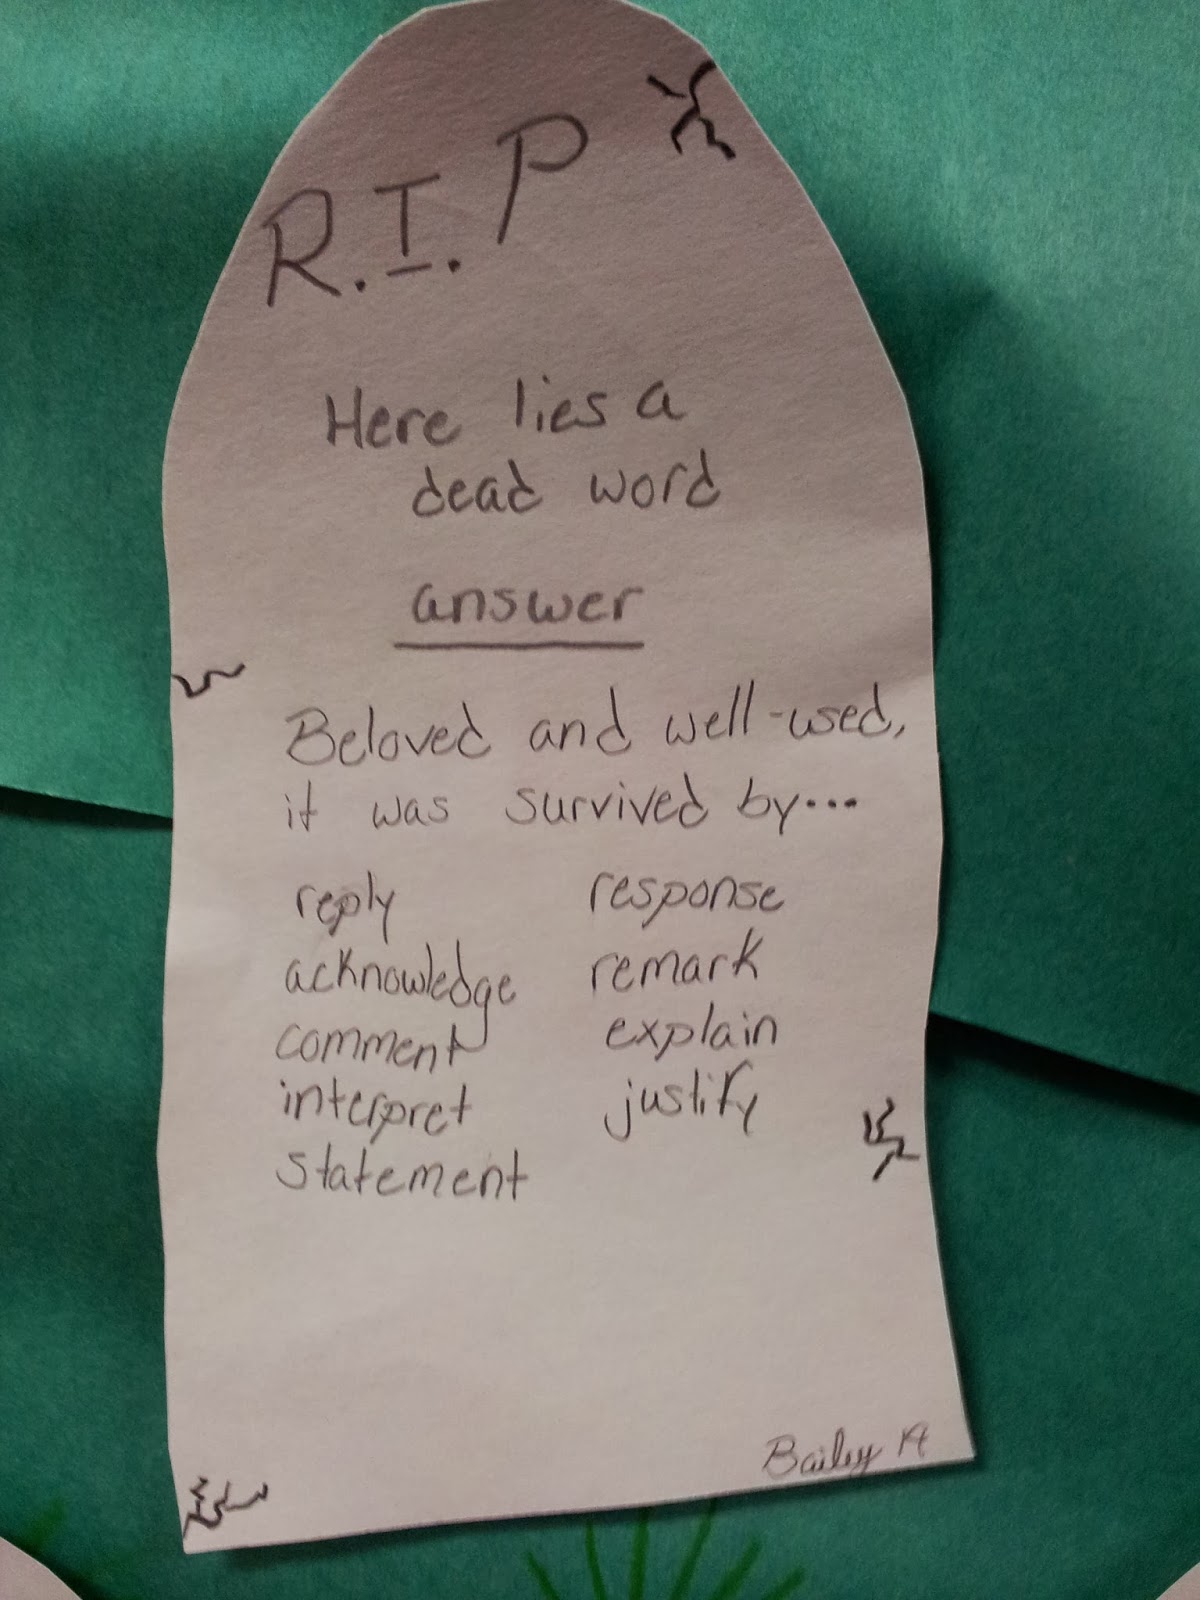 R.I.P
Here lies a
dead word
answer
Beloved and well-used,
it was survived by...
reply response
acknowledge remark
comment explain
interpret justify
statement
Bailey